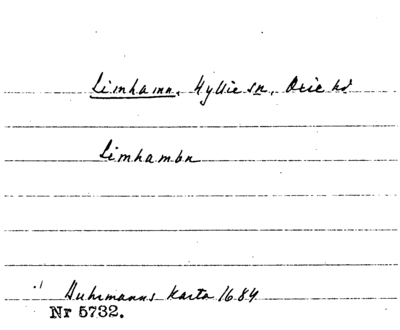 Limhamn, Hyllie sn, Oxie hd
Limhambn
Buhrmanns Karta 1684
Nr 5732.